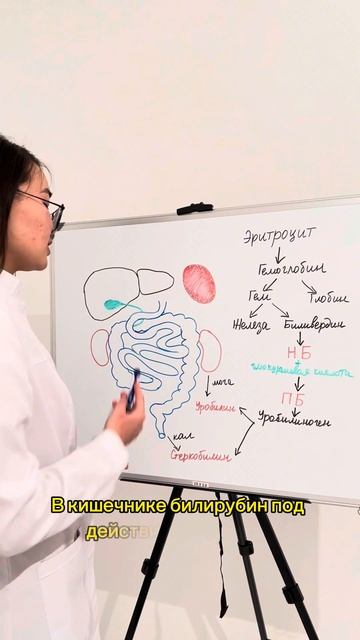 Эритроцит
Гемоглобин
Гем Глобин
Железа Биливердин
НБ
+
глюкуроновая кислота
ПБ
моча
Уробилин
Уробилиноген
кал
Стеркобилин
В кишечнике билирубин под
действ